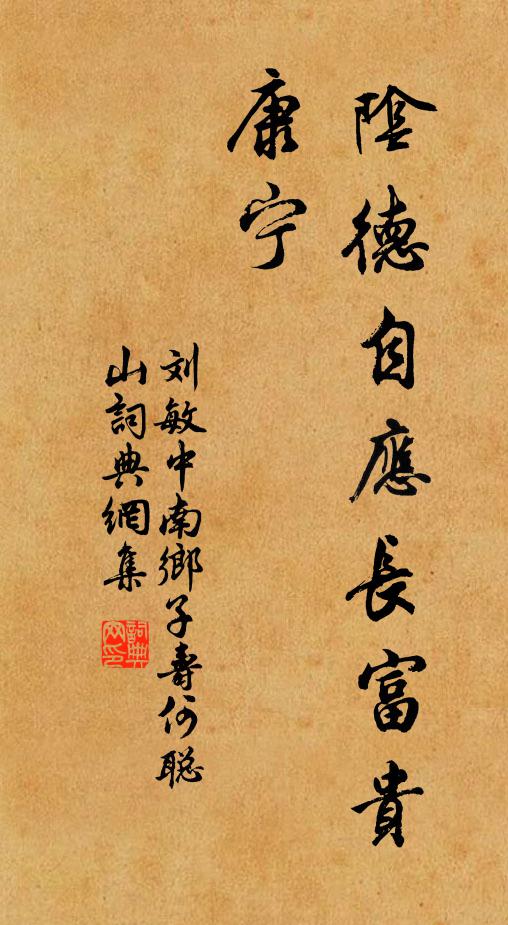 陰德自應長富貴
康宁
刘敏中南鄉子壽何聪
山詞典網集
詞典
网印